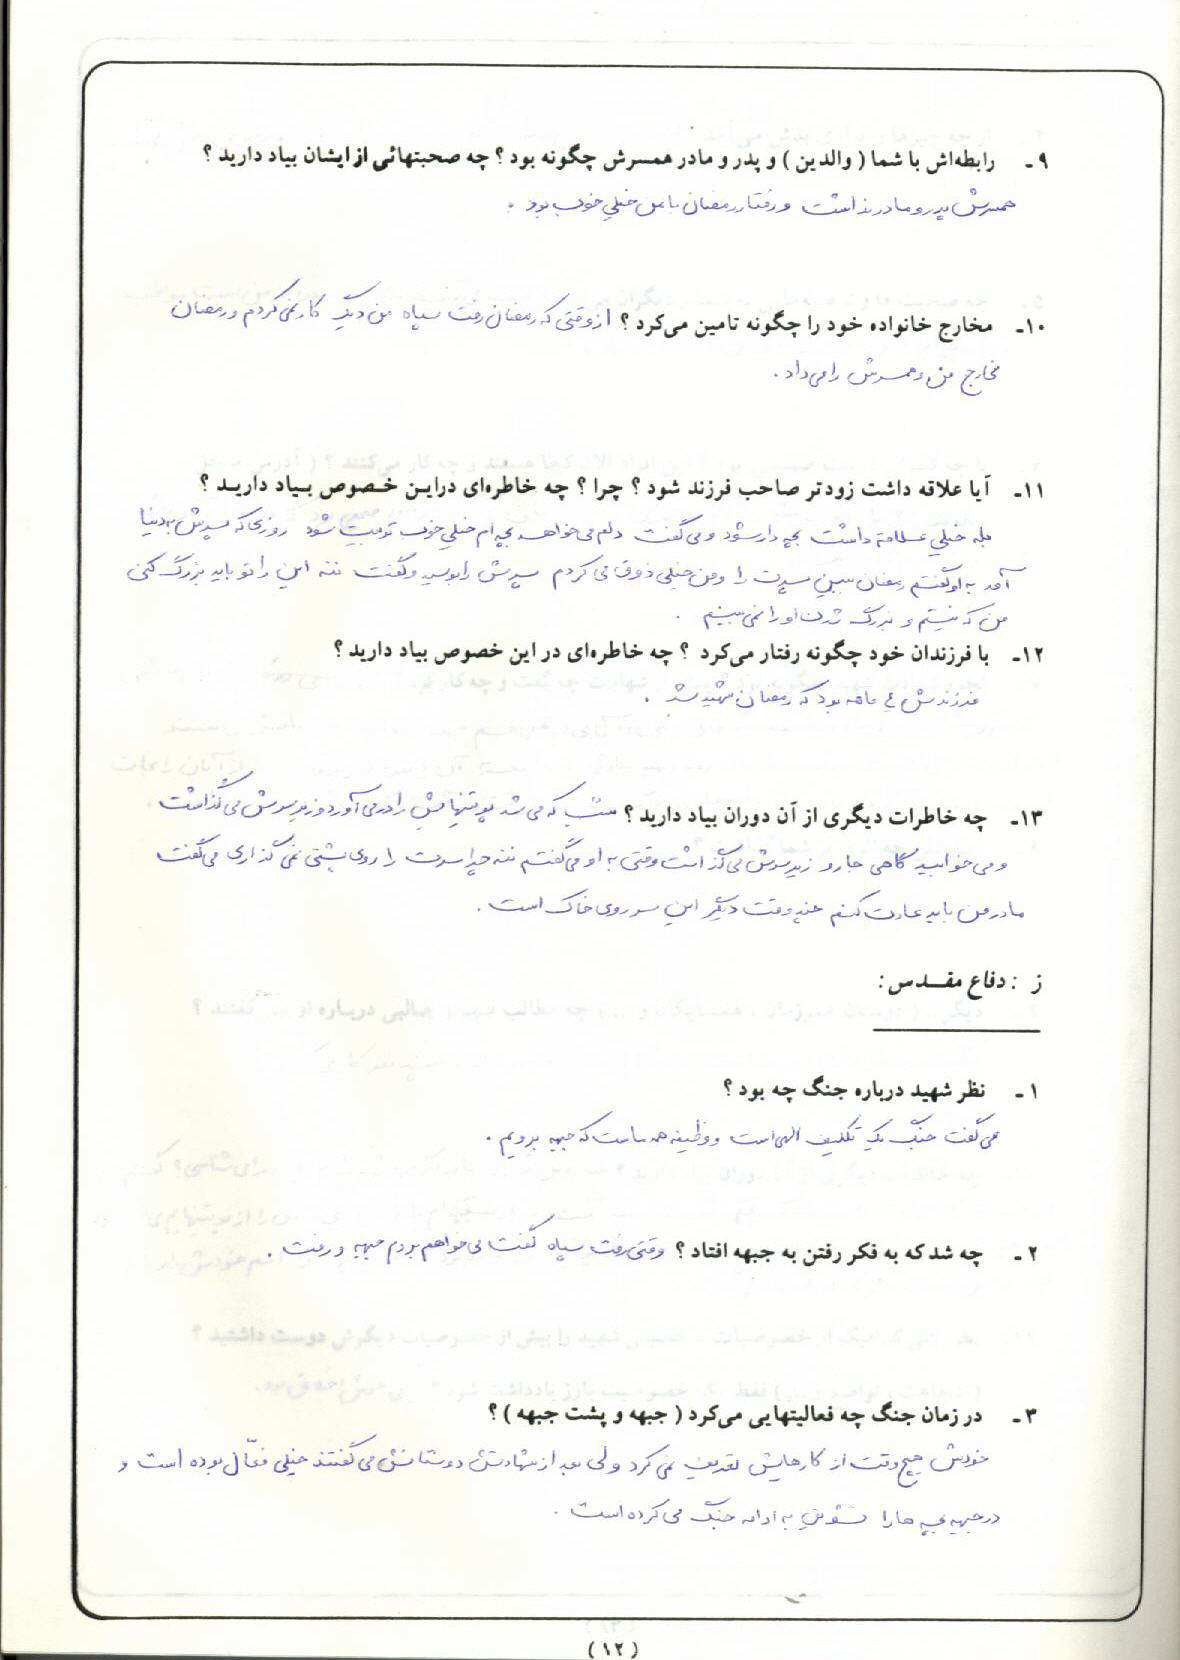 ۹ـ رابطه‌اش با شما ( والدین ) و پدر و مادر همسرش چگونه بود ؟ چه صحبتهائی از ایشان بیاد دارید ؟
همسرش پدر و مادر نداشت و رفتار رمضان با من خیلی خوب بود .
۱۰ـ مخارج خانواده خود را چگونه تامین می‌کرد ؟ از وقتی که رمضان رفت سپاه من دیگر کار نمی کردم و رمضان
مخارج من و همسرش را می داد .
۱۱ـ آیا علاقه داشت زودتر صاحب فرزند شود ؟ چرا ؟ چه خاطره‌ای دراین خصوص بیاد دارید ؟
بله خیلی علاقه داشت بچه دار شود و می گفت دلم می خواهد بچه ام خیلی خوب تربیت شود روزی که پسرش به دنیا
آمد به او گفتم رمضان ببین پسرت را و من خیلی ذوق می کردم پسرش را بوسید و گفت ننه این را تو باید بزرگ کنی
من که نیستم و بزرگ شدن او را نمی بینم .
۱۲ـ با فرزندان خود چگونه رفتار می‌کرد ؟ چه خاطره‌ای در این خصوص بیاد دارید ؟
فرزندش ۴ ماهه بود که رمضان شهید شد .
۱۳ـ چه خاطرات دیگری از آن دوران بیاد دارید ؟ شب که می شد پوتینهایش را در می آورد و زیر سرش می گذاشت
و می خوابید گاهی جارو زیر سرش می گذاشت وقتی به او می گفتم ننه چرا سرت را روی پشتی نمی گذاری می گفت
مادر من باید عادت کنم چند وقت دیگر این سر روی خاک است .
ز : دفاع مقدس :
۱ـ نظر شهید درباره جنگ چه بود ؟
می گفت جنگ یک تکلیف الهی است و وظیفه همه ماست که جبهه برویم .
۲ـ چه شد که به فکر رفتن به جبهه افتاد ؟ وقتی رفت سپاه گفت می خواهم بروم جبهه و رفت .
۳ـ در زمان جنگ چه فعالیتهایی می‌کرد ( جبهه و پشت جبهه ) ؟
خودش هیچ وقت از کارهایش تعریف نمی کرد ولی بعد از شهادتش دوستانش می گفتند خیلی فعّال بوده است و
در جبهه بچه ها را تشویق به ادامه جنگ می کرده است .
( ۱۲ )